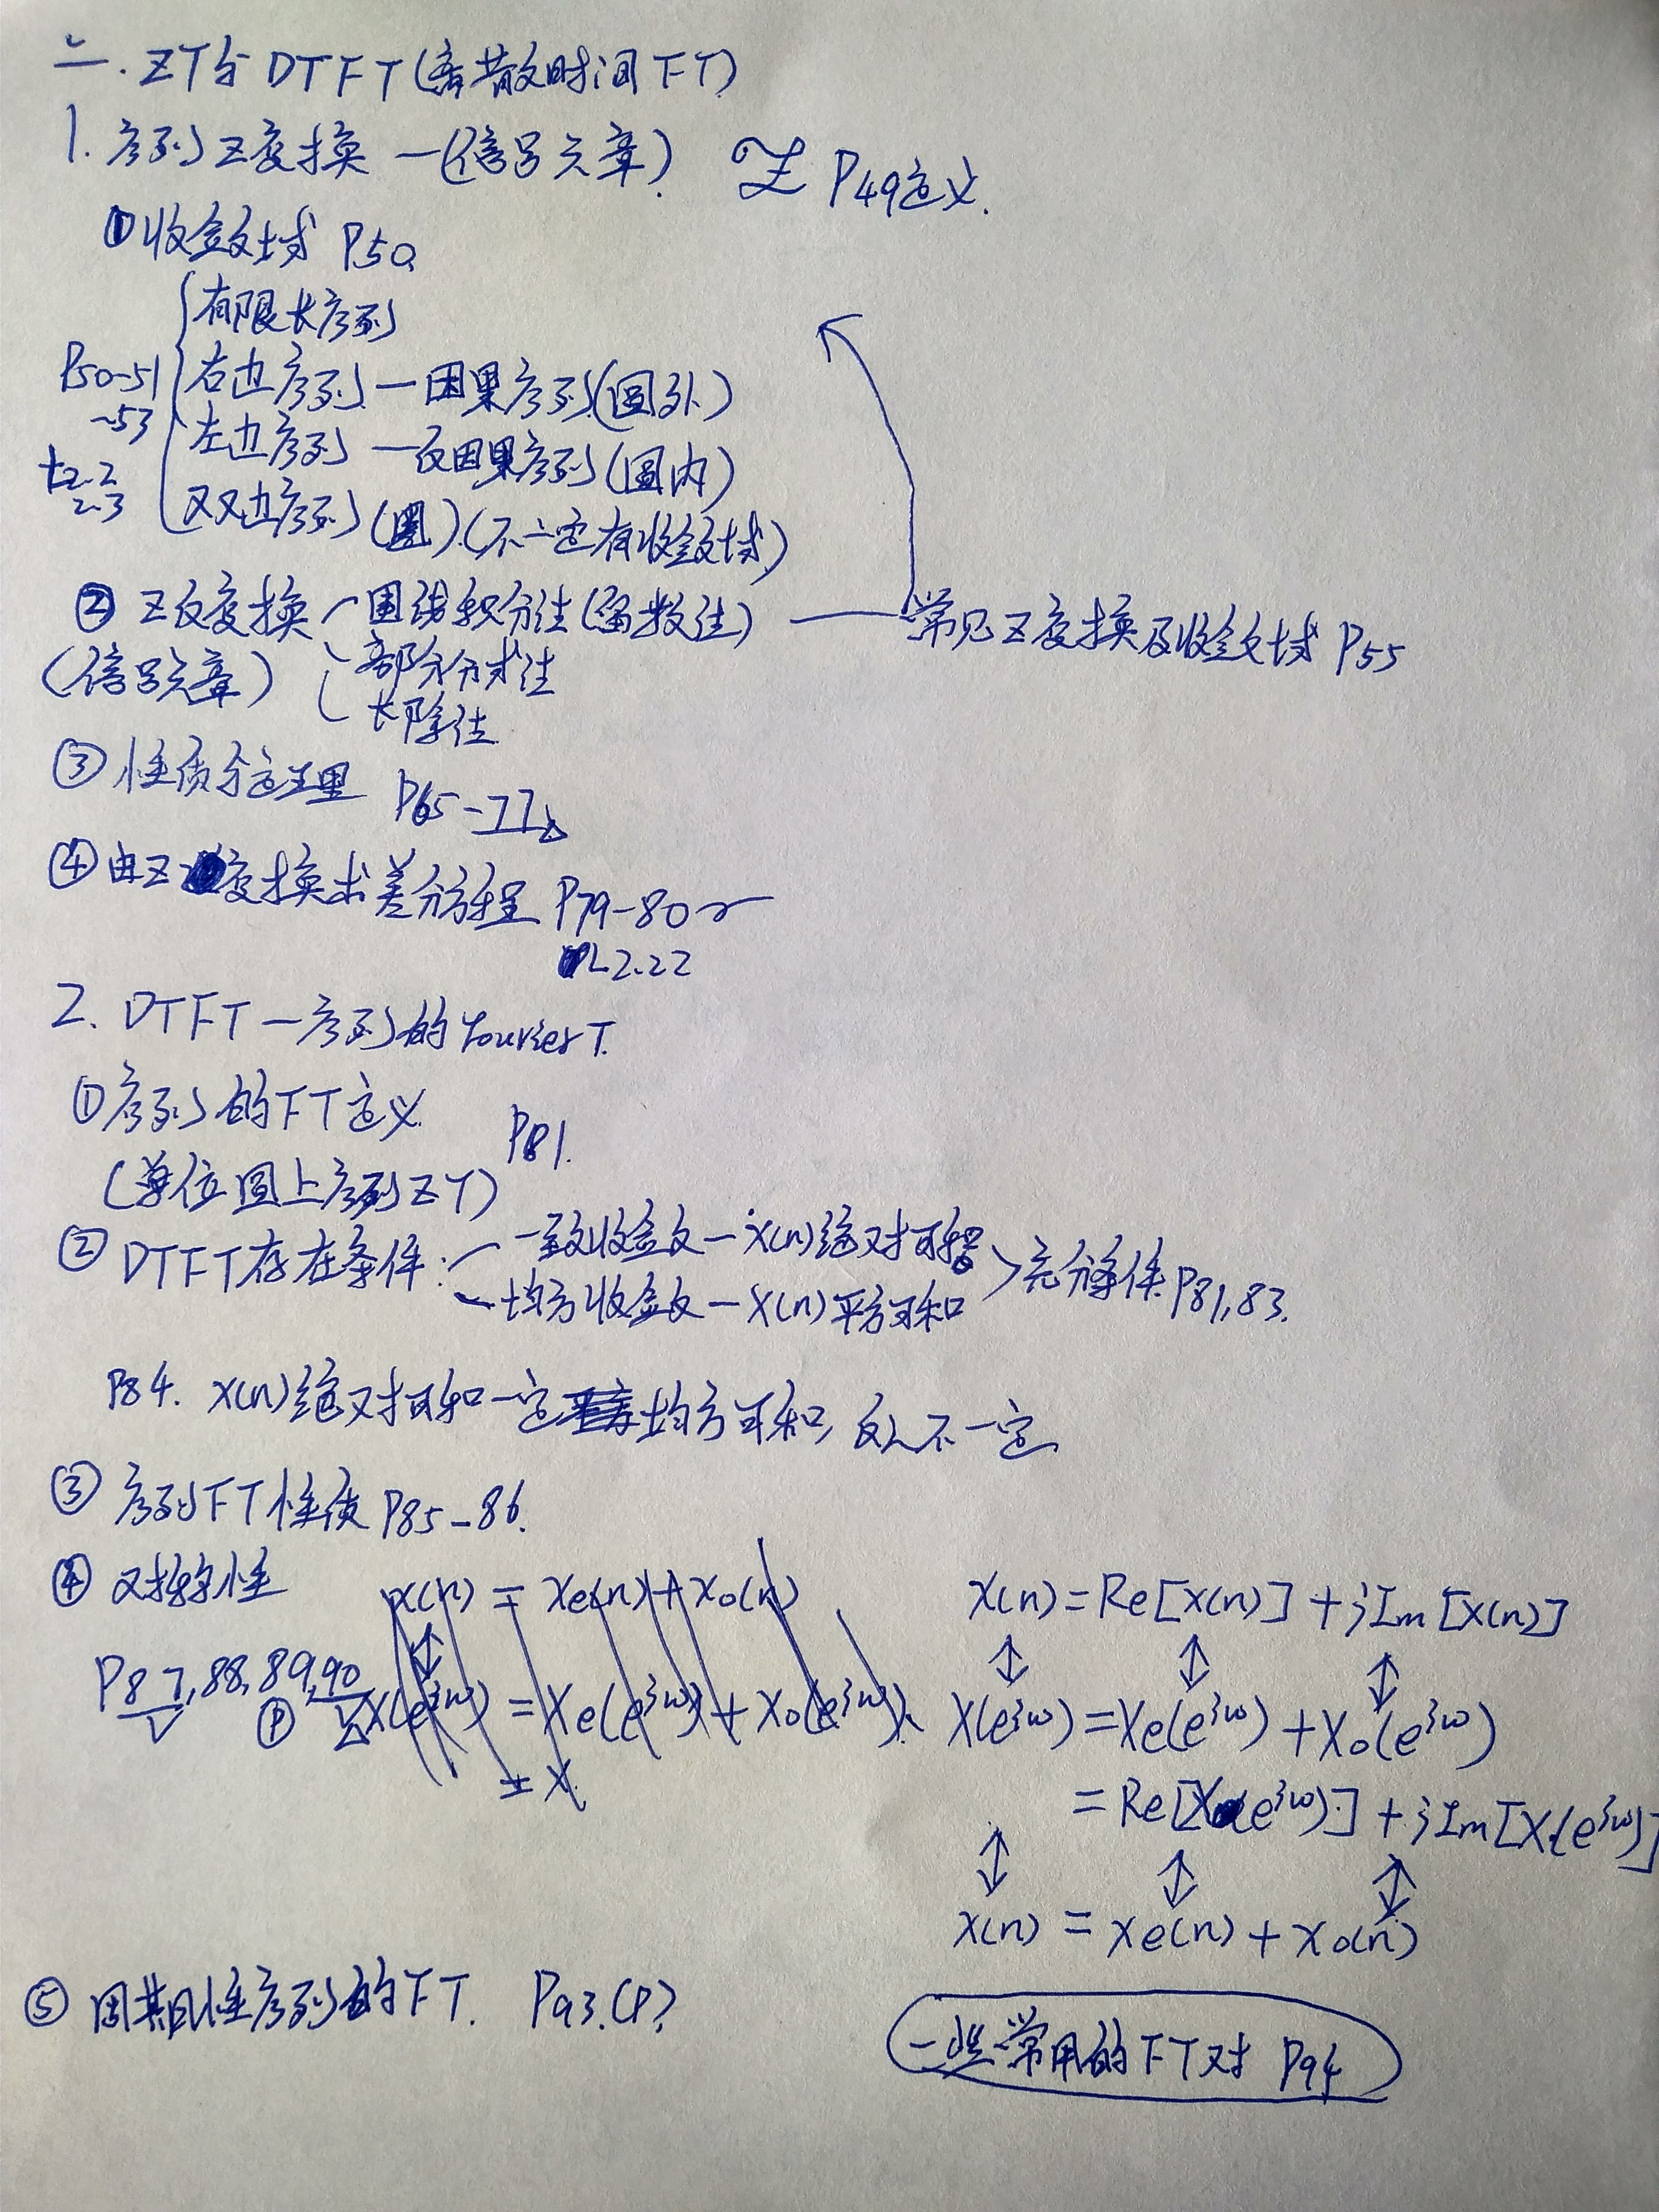 二. ZT与DTFT(离散时间FT)
1. 序列Z变换 —(信号六章). Z P49定义.
①收敛域 P50
有限长序列
P50-51 右边序列 — 因果序列(圆外)
~53 左边序列 — 反因果序列(圆内)
2.3 双边序列(圈).(不一定有收敛域)
② Z反变换 围线积分法(留数法) —— 常见Z变换及收敛域 P55
(信号六章) 部分分式法
长除法
③ 性质与定理 P65-77
④ 由Z变换求差分方程 P79-80
2.22
2. DTFT — 序列的Fourier T.
①序列的FT定义 P81.
(单位圆上序列ZT)
② DTFT存在条件: 一致收敛 — x(n)绝对可和 充分条件 P81,83.
均方收敛 — x(n)平方可和
P84. x(n)绝对可和一定均方可和, 反之不一定
③ 序列FT性质 P85-86.
④ 对称性 x(n) = xe(n) + xo(n) x(n) = Re[x(n)] + jIm[x(n)]
P87,88,89,90 X(e^jω) = Xe(e^jω) + Xo(e^jω). X(e^jω) = Xe(e^jω) + Xo(e^jω)
= X
= Re[X(e^jω)] + jIm[X(e^jω)]
x(n) = xe(n) + xo(n)
⑤ 周期性序列的FT. P93.
一些常用的FT对 P94